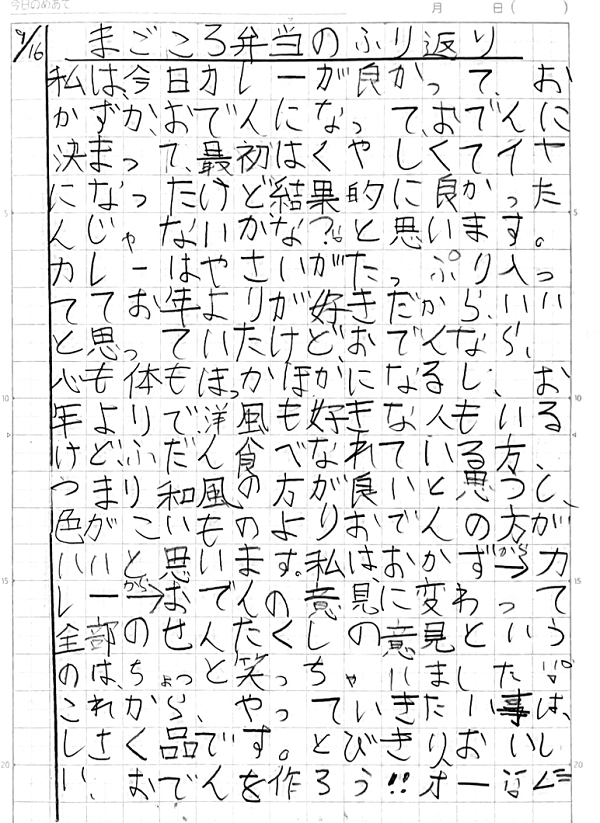 今日のめあて
月 日（ ）
9/16 まごころ弁当のふり返り
私は、今日カレーが良かって、お
かずか、おでんになって、おでんに
決まって、最初はくやしくてイヤ
になったけど結果的に良かった
んじゃないかな?。と思います。
カレーはやさいがたっぷり入っ
てておお年よりが好きだから、いい
と思っていたけど、おでんなら、
心も体もほっかほかになるし、お
年よりで洋風も好きな人もいる
けど、ふだん食べなれている方、
つまり和風の方が良いと思うし、
色がこいものよりおでんの方が
いいと思います。私はおかずから→カ
レーから→おでんの意見に変わって
全部のせんたくしの意見という
のは、ちょっと笑っちゃいました。
これから、やっていきたい事は、
しさく品です。とびきりおいし
い、おでんを作ろう!!オーな